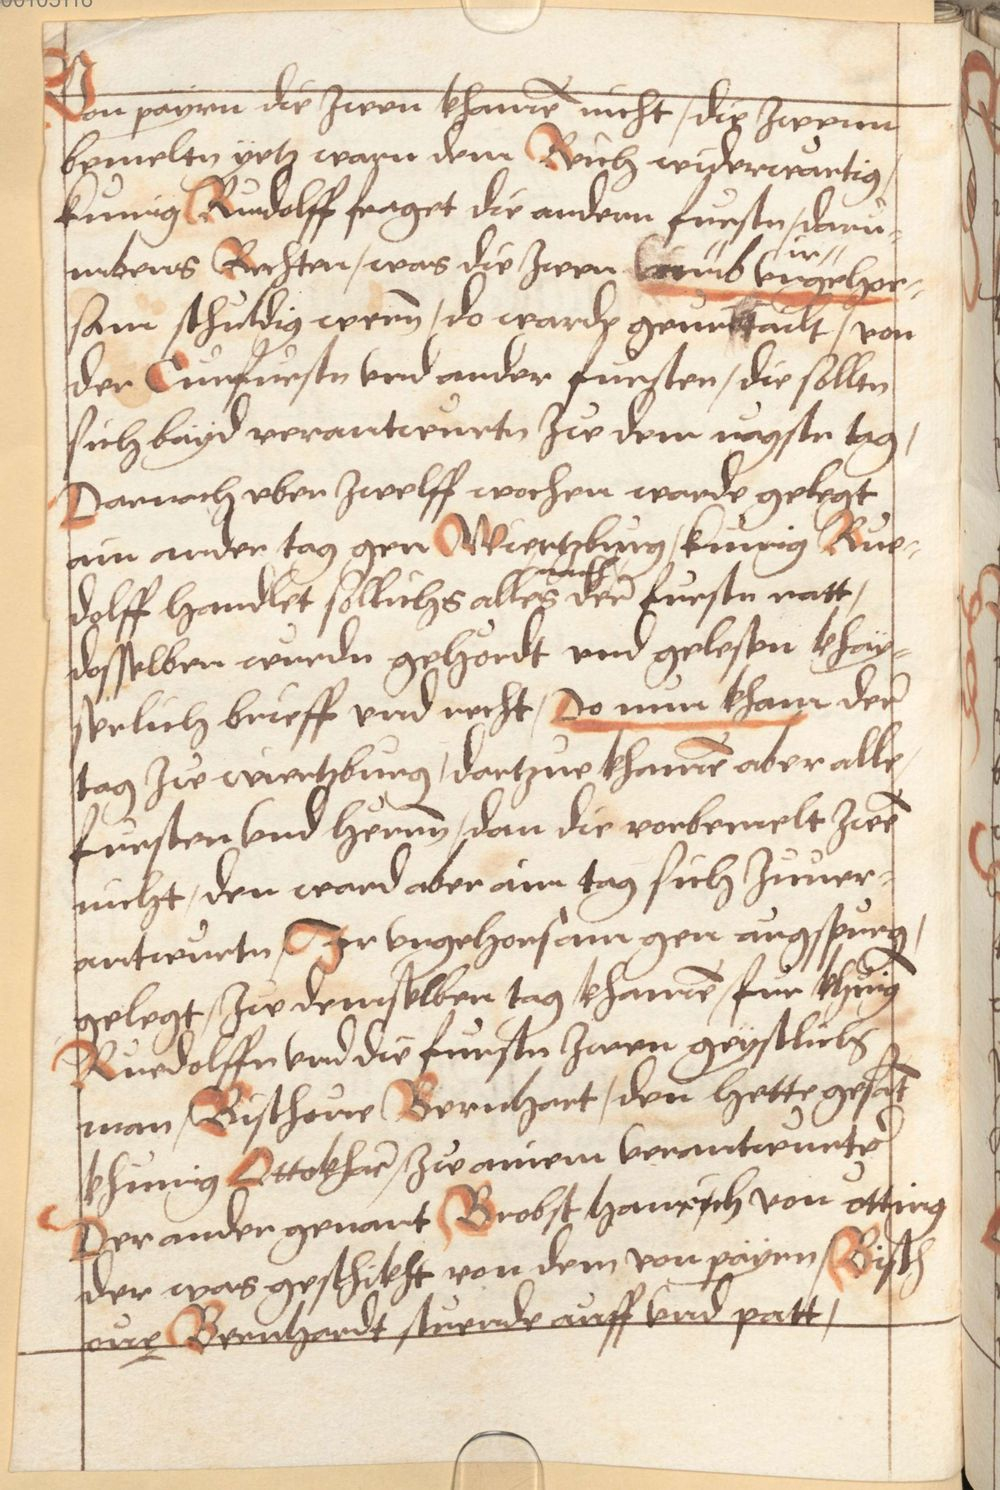 00105116
Von payrn die zwen khamē nicht / die zwenn
bemeltn yetz warn dem Reich widerwartig /
kunig Ruedolff fraget die andern furstn / daru-
mbens Rechten / was die zwen umb ir ungehor-
sam schuldig wern / do wardt geurttailt / von
der Curfurstn und ander fursten / die solltn
sich bayd verantwurtn zue dem nagstn tag /
Darnach uber zwelff wochen warde gelegt
ain ander tag gen Wiertzburg / kunig Rue-
dolff handlet sollichs alles nach der furstn ratt /
dosselben wurdn gehördt und gelesen khay-
serlich brieff und recht / Do nun kham der
tag zue wiertzburg / dartzue khamē aber alle /
fursten und herrn / dan die vorbemelt zwē
nicht / den ward aber ain tag sich zuuer-
antwurtn / Ir ungehorsam gen augspurg /
gelegt / zue demselben tag khamē / fur khunig
Ruedolffn und die furstn zwen geystlich
man / Bischoue Bernhart / den hette gesāt
khunig Ottokher / zue ainem verantwurter
Der ander genant Brobst hanrich von otting
der was geschikht von dem von payrn / Bisch
oue Bernhardt stuende auff und patt /